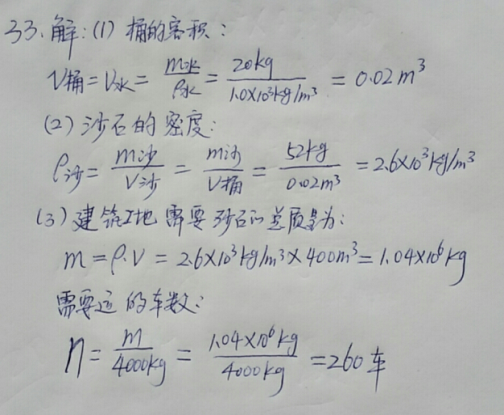 33.解:(1) 桶的容积:
V桶=V水=m水/ρ水=20kg/1.0×10³kg/m³=0.02m³
(2)沙石的密度:
ρ沙=m沙/V沙=m沙/V桶=52kg/0.02m³=2.6×10³kg/m³
(3)建筑工地需要砂石的总质量为:
m=ρ.V=2.6×10³kg/m³×400m³=1.04×10⁶kg
需要运的车数:
n=m/4000kg=1.04×10⁶kg/4000kg=260车